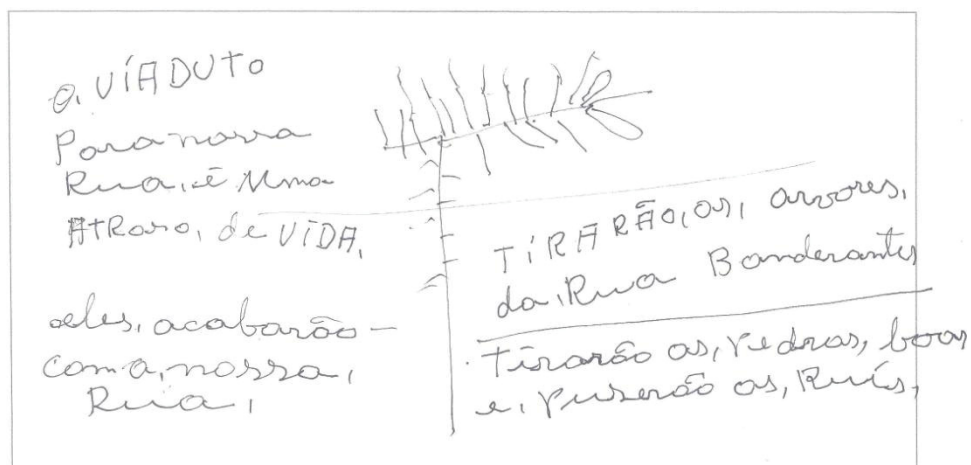 O, VÍADUTO
Para nossa
Rua, é Uma
AtRaso, de VIDA,
eles, acabarão –
com a, nossa,
Rua,
TÍRARÃO, as, arvores,
da, Rua Banderantes
tirarão as, Pedras, boas
e, Puserão as, Ruís,